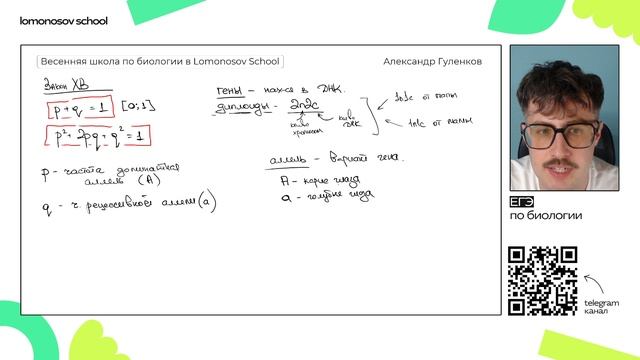 lomonosov school
Весенняя школа по биологии в Lomonosov School
Александр Гуленков
Закон ХВ
p + q = 1 [0;1]
p² + 2pq + q² = 1
p - частота доминатной
аллель (A)
q - ч. рецессивной аллели (a)
гены - нахся в ДНК.
диплоиды - 2n2c
кол-во
хромосом
кол-во
ДНК
1n1c от папы
1n1c от мамы
аллель - вариант гена.
A - карие глаза
a - голубые глаза
ЕГЭ
по биологии
telegram
канал